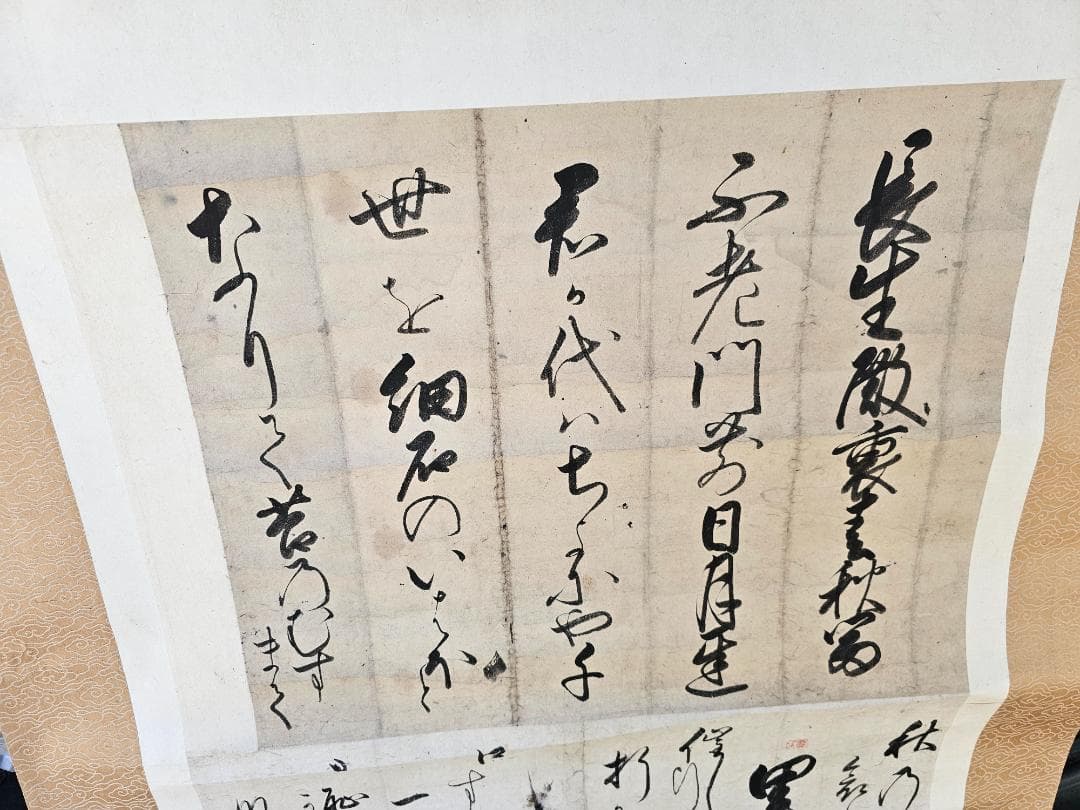 長生殿裏春秋富
不老門前日月遅
君か代はちよにや千
世を細石のいはほと
なりて苔のむす
まて
秋乃